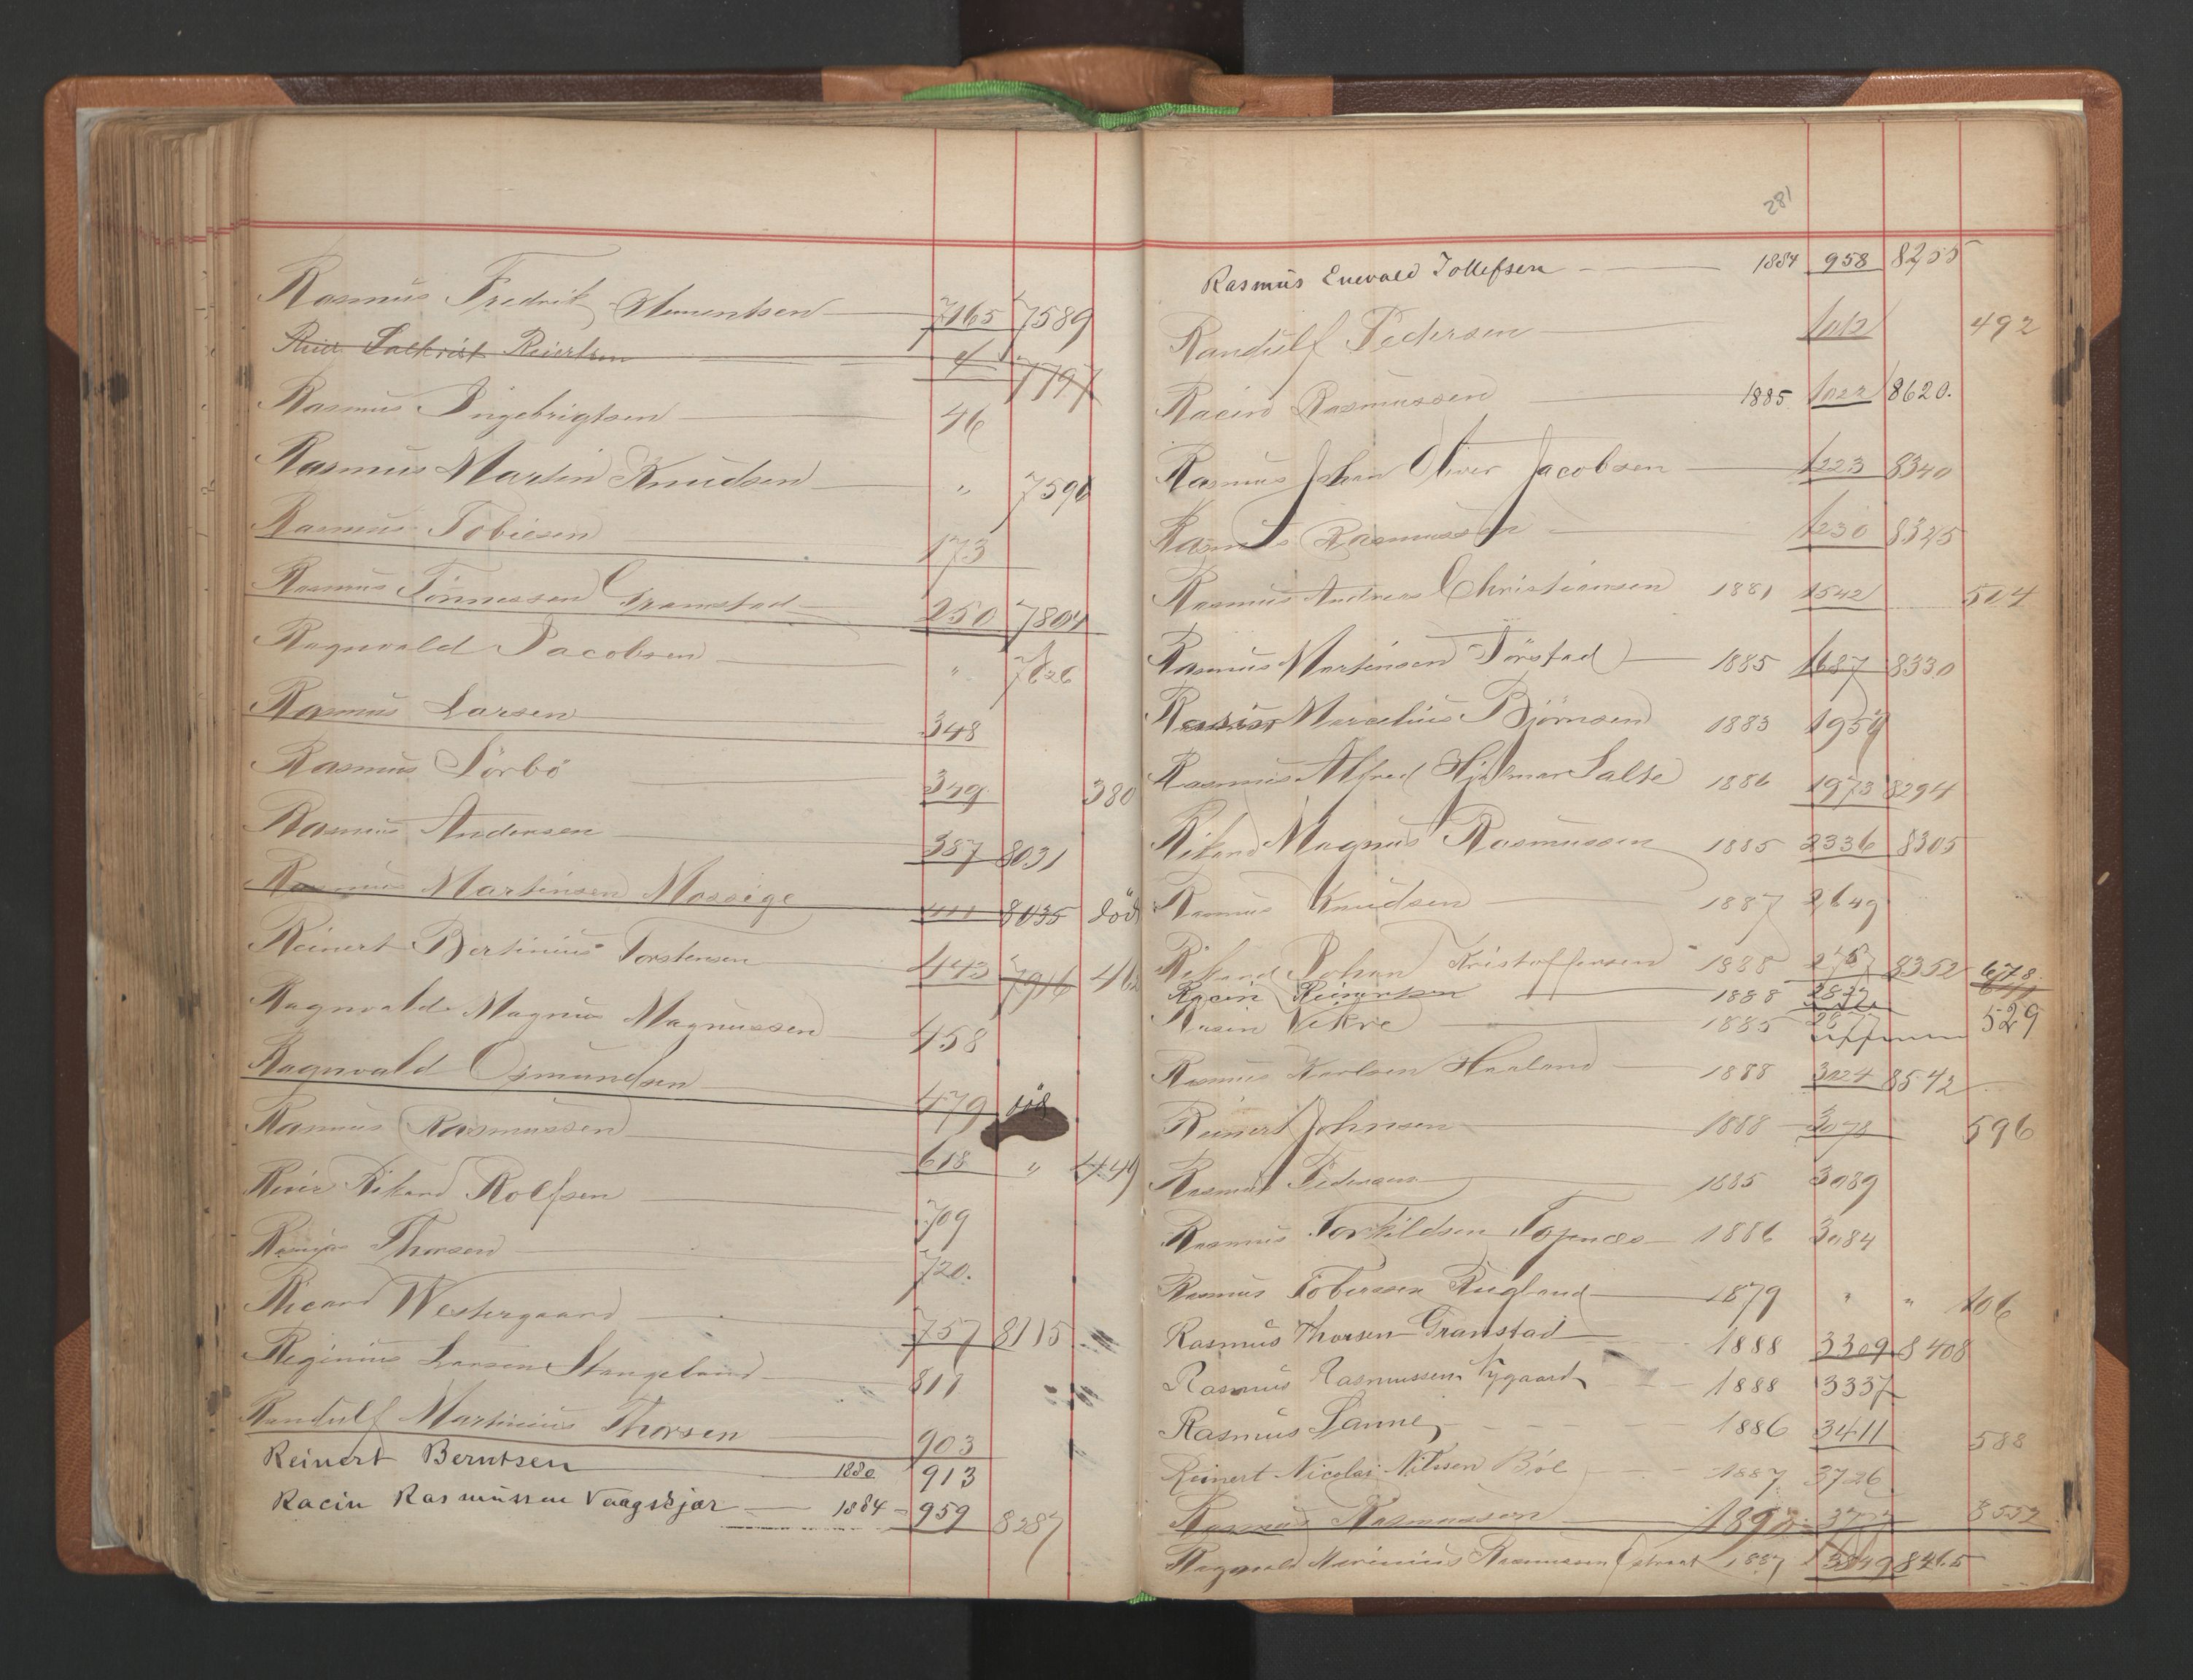 Rasmus Fredrik Clementsen 7165 7589
Reier Reiertsen 7797
Rasmus Ingebrigtsen 46
Rasmus Martin Knudsen " 7590
Rasmus Tobiesen 173
Rasmus Tönnessen Gramstad 250 7804
Ragnvald Jacobsen " 7826
Rasmus Larsen 348
Rasmus Sörbö 349 380
Rasmus Andersen 387 8031
Rasmus Martinsen Mossige 411 8035 död
Reinert Bertinius Torstensen 443 7916
Ragnvald Magnus Magnussen 458
Ragnvald Osmundsen 479
Rasmus Rasmussen 618 " 449
Reier Rikard Rolfsen 709
Thorsen 720.
Ricard Westergaard 757 8115
Reginius Larsen Stangeland 811
Randulf Martinius Thorsen 903
Reinert Berntsen 1880 913
Racin Rasmussen Vaagskjær 1884 - 959 8287
281
Rasmus Enevald Tollefsen 1884 958 8255
Randulf Pedersen 492
Racin Rasmussen 1885 1022 8620.
Rasmus Johan Oliver Jacobsen 1223 8340
Rasmus Rasmussen 1230 8325
Rasmus Andreas Christiansen 1881 1542 504
Rasmus Martinsen Törstad 1885 1687 8330
Marcelius Björnsen 1883 1959
Rasmus Alfred Hjalmar Salte 1886 1973 8294
Rikard Magnus Rasmussen 1885 2336 8305
Rasmus Knudsen 1887 2649
Rikard Johan Kristoffersen 1888 8352 678.
Racin Reinertsen 1888
Rasin Vikre 1885 529
Rasmus Karlsen Haaland 1888 3024 8542
Reinert Johnsen 1888 3078 596
Rasmus Pedersen 1885 3089
Rasmus Torkildsen Topnæs 1886 3084
Rasmus Tobiassen Rugland 1879 " " 106
Rasmus Thorsen Granstad 1888 3309 8408
Rasmus Rasmussen Nygaard 1888 3337
Rasmus Lanne 1886 3411 588
Reinert Nicolai Nilssen Böe 1887 3726
Rasmus Rasmussen 1890 8552
Ragnvald Marinius Rasmussen 1887 3849 8465